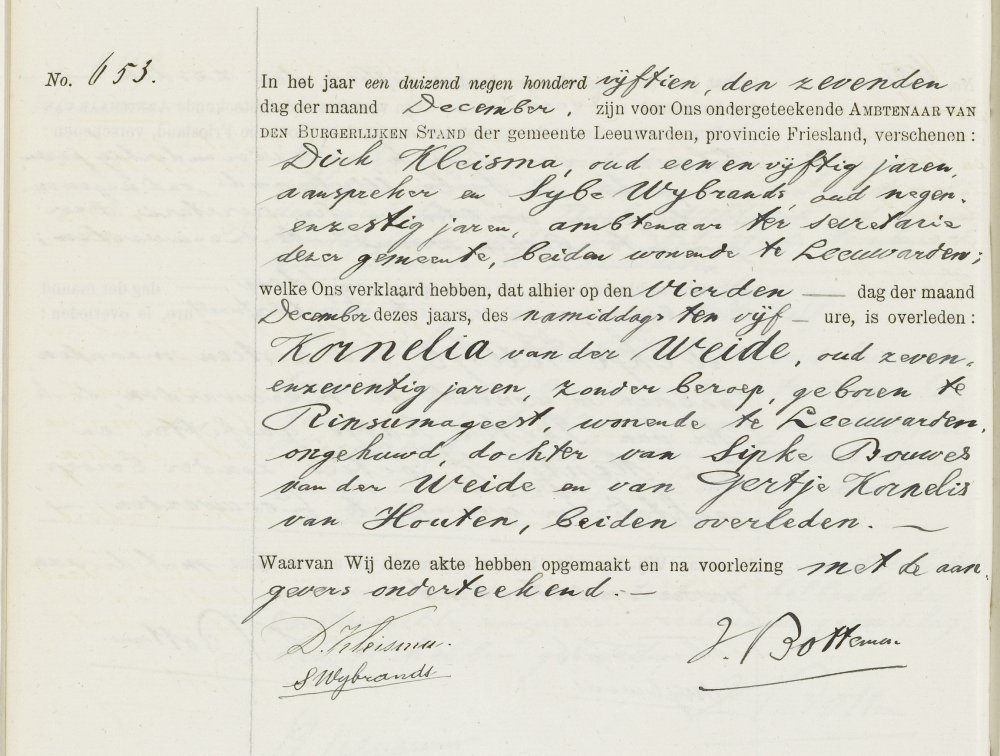 No. 653.
In het jaar een duizend negen honderd vijftien, den zevenden
dag der maand December, zijn voor Ons ondergeteekende AMBTENAAR VAN
DEN BURGERLIJKEN STAND der gemeente Leeuwarden, provincie Friesland, verschenen:
Dirk Kleisma, oud een en vijftig jaren,
aanspreker en Sybe Wybrands, oud negen-
enzestig jaren, ambtenaar ter secretarie
dezer gemeente, beiden wonende te Leeuwarden;
welke Ons verklaard hebben, dat alhier op den vierden — dag der maand
December dezes jaars, des namiddags ten vijf — ure, is overleden:
Kornelia van der Weide, oud zeven-
enzeventig jaren, zonder beroep, geboren te
Rinsumageest, wonende te Leeuwarden,
ongehuwd, dochter van Sipke Bouwes
van der Weide en van Gertje Kornelis
van Houten, beiden overleden. —
Waarvan Wij deze akte hebben opgemaakt en na voorlezing met de aan-
gevers onderteekend. —
D. Kleisma.
S Wybrands
J. Bottema.